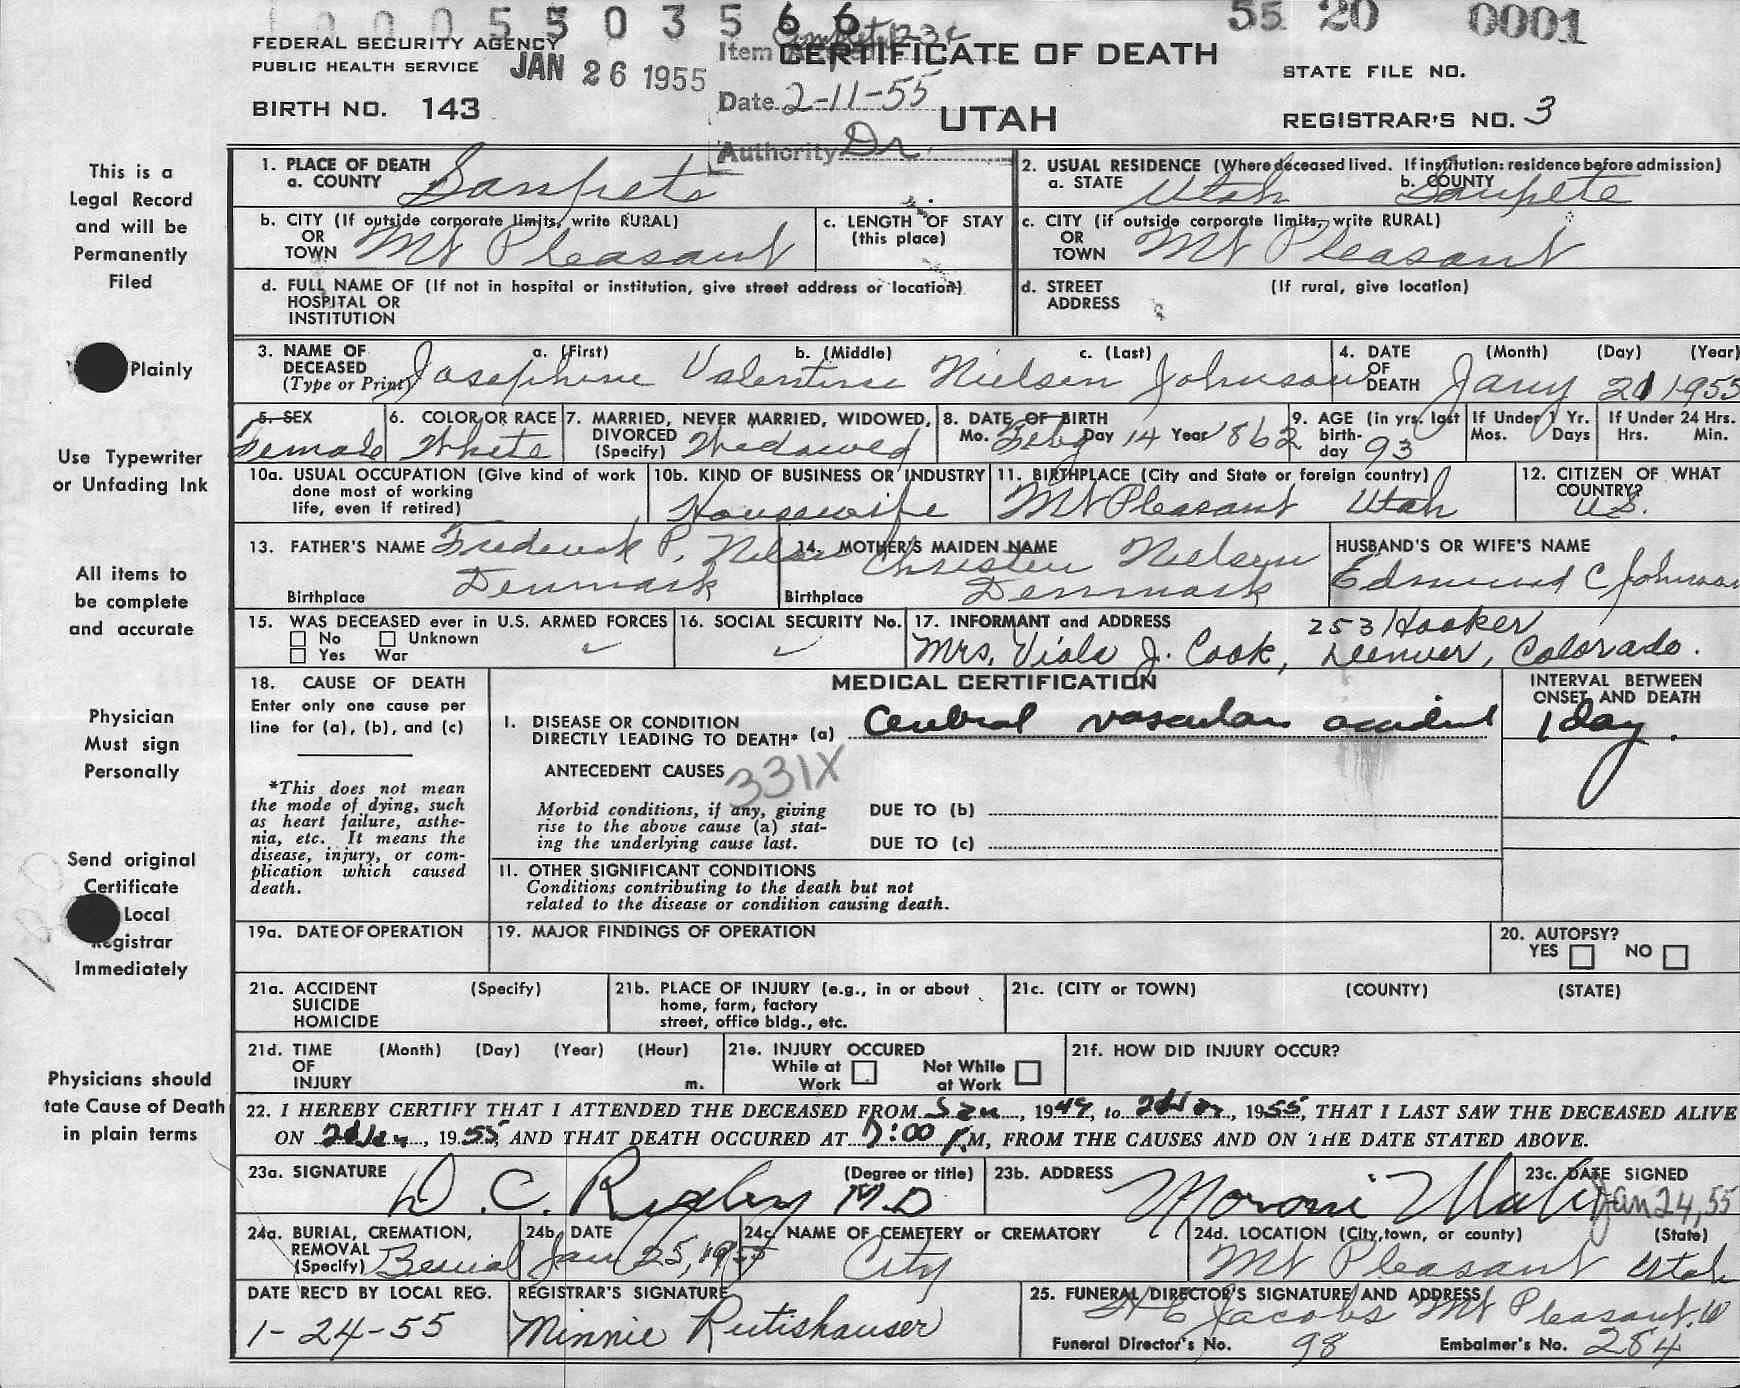 0 0 0 5 5 0 3 5 6 6
55 20 0001
FEDERAL SECURITY AGENCY
PUBLIC HEALTH SERVICE
JAN 26 1955
Item
CERTIFICATE OF DEATH
STATE FILE NO.
BIRTH NO. 143
Date 2-11-55
UTAH
REGISTRAR'S NO. 3
Authority Dr.
This is a
Legal Record
and will be
Permanently
Filed
Plainly
Use Typewriter
or Unfading Ink
All items to
be complete
and accurate
Physician
Must sign
Personally
Send original
Certificate
Local
Registrar
Immediately
Physicians should
tate Cause of Death
in plain terms
1. PLACE OF DEATH
a. COUNTY Sanpete
2. USUAL RESIDENCE (Where deceased lived. If institution: residence before admission)
a. STATE Utah b. COUNTY Sanpete
b. CITY (If outside corporate limits, write RURAL)
OR
TOWN Mt Pleasant
c. LENGTH OF STAY
(this place)
c. CITY (if outside corporate limits, write RURAL)
OR
TOWN Mt Pleasant
d. FULL NAME OF (If not in hospital or institution, give street address or location)
HOSPITAL OR
INSTITUTION
d. STREET (If rural, give location)
ADDRESS
3. NAME OF DECEASED (Type or Print) a. (First) b. (Middle) c. (Last)
Josephine Valentine Nielsen Johnson
4. DATE OF DEATH (Month) (Day) (Year)
Jany 21 1955
5. SEX
Female
6. COLOR OR RACE
White
7. MARRIED, NEVER MARRIED, WIDOWED,
DIVORCED
(Specify) Widowed
8. DATE OF BIRTH
Mo. Feby Day 14 Year 1862
9. AGE (in yrs. last
birth-
day 93
If Under 1 Yr.
Mos. Days
If Under 24 Hrs.
Hrs. Min.
10a. USUAL OCCUPATION (Give kind of work
done most of working
life, even if retired)
10b. KIND OF BUSINESS OR INDUSTRY
Housewife
11. BIRTHPLACE (City and State or foreign country)
Mt Pleasant Utah
12. CITIZEN OF WHAT
COUNTRY?
U.S.
13. FATHER'S NAME Frederick P.
Birthplace Denmark
14. MOTHER'S MAIDEN NAME
Christen Nielsen
Birthplace Denmark
HUSBAND'S OR WIFE'S NAME
Edmund C Johnson
15. WAS DECEASED ever in U.S. ARMED FORCES
No Unknown
Yes War
16. SOCIAL SECURITY No.
17. INFORMANT and ADDRESS 253 Hooker
Mrs. Viola J. Cook, Denver, Colorado.
18. CAUSE OF DEATH
Enter only one cause per
line for (a), (b), and (c)
*This does not mean
the mode of dying, such
as heart failure, asthe-
nia, etc. It means the
disease, injury, or com-
plication which caused
death.
MEDICAL CERTIFICATION
INTERVAL BETWEEN
ONSET AND DEATH
I. DISEASE OR CONDITION
DIRECTLY LEADING TO DEATH* (a) Cerebral vascular accident
1 day.
ANTECEDENT CAUSES
331X
Morbid conditions, if any, giving
rise to the above cause (a) stat-
ing the underlying cause last.
DUE TO (b)
DUE TO (c)
II. OTHER SIGNIFICANT CONDITIONS
Conditions contributing to the death but not
related to the disease or condition causing death.
19a. DATE OF OPERATION
19. MAJOR FINDINGS OF OPERATION
20. AUTOPSY?
YES NO
21a. ACCIDENT (Specify)
SUICIDE
HOMICIDE
21b. PLACE OF INJURY (e.g., in or about
home, farm, factory
street, office bldg., etc.
21c. (CITY or TOWN) (COUNTY) (STATE)
21d. TIME (Month) (Day) (Year) (Hour)
OF
INJURY m.
21e. INJURY OCCURED
While at Work
Not While at Work
21f. HOW DID INJURY OCCUR?
22. I HEREBY CERTIFY THAT I ATTENDED THE DECEASED FROM Jan, 1949, to, 1955, THAT I LAST SAW THE DECEASED ALIVE
ON, 1955, AND THAT DEATH OCCURED AT 7:00 P.M, FROM THE CAUSES AND ON THE DATE STATED ABOVE.
23a. SIGNATURE (Degree or title)
D. C. Rigby M.D
23b. ADDRESS
Moroni Utah
23c. DATE SIGNED
Jan 24, 55
24a. BURIAL, CREMATION,
REMOVAL
(Specify) Burial
24b. DATE
Jan 25, 1955
24c. NAME OF CEMETERY or CREMATORY
City
24d. LOCATION (City, town, or county) (State)
Mt Pleasant Utah
DATE REC'D BY LOCAL REG.
1-24-55
REGISTRAR'S SIGNATURE
Minnie Rutishauser
25. FUNERAL DIRECTOR'S SIGNATURE AND ADDRESS
H E Jacobs Mt Pleasant, U
Funeral Director's No. 98 Embalmer's No. 284